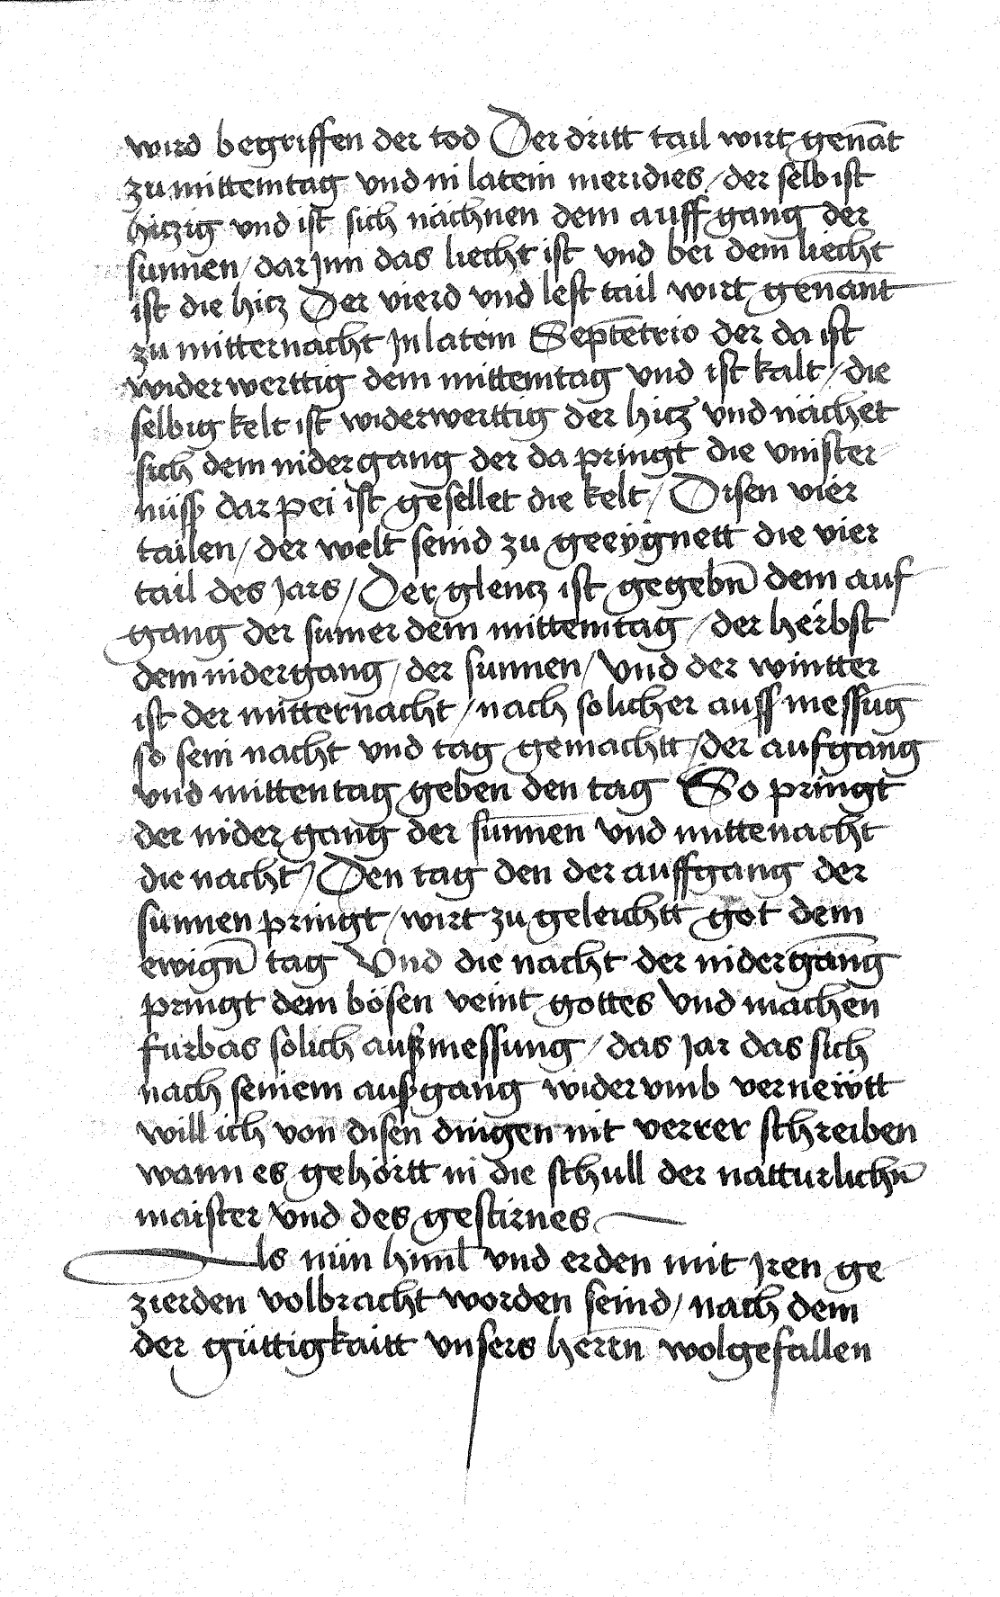 wird begriffen der tod Der dritt tail wirt genāt
zu mittemtag vnd in latein meridies / der selb ist
hiczig vnd ist sich nächnen dem auff gang der
sunnen / dar Jnn das liecht ist vnd bei dem liecht
ist die hicz Der vierd vnd lest tail wirt genānt
zu mitternacht Jn latein Septētrio der da ist
widerwerttig dem mittemtag vnd ist kalt / die
selbig kelt ist widerwerttig der hicz vnd nächet
sich dem nidergang der da pringt die vinster
nüsß dar pei ist gesellet die kelt / Disen vier
tailen / der welt seind zu geeygnett die vier
tail des Jars / Der glencz ist gegebn̄ dem auf
gang der sumer dem mittemtag / der herbst
dem nidergang / der sunnen / Vnd der wintter
ist der mitternacht / nach solicher auss messūg
so sein nacht vnd tag gemachtt / der aufgang
vnd mittentag geben den tag So pringt
der nider gang der sunnen vnd mittenacht
die nacht / Den tag den der auffgang der
sunnen pringt / wirt zu geleichtt got dem
ewign̄ tag Vnd die nacht der nidergang
pringt dem bösen veint gottes Vnd machen
furbas solich außmessung / das Jar das sich
nach seinem außgang wider vmb vernewtt
will ich von disen dingen nit verrer schreiben
wann es gehörtt in die schull der natturlichn̄
maister Vnd des gestirnes
Als nün himl vnd erden mit Jren ge
zierden volbracht worden seind / nach dem
der güttigkaitt vnsers herēn wolgefallen